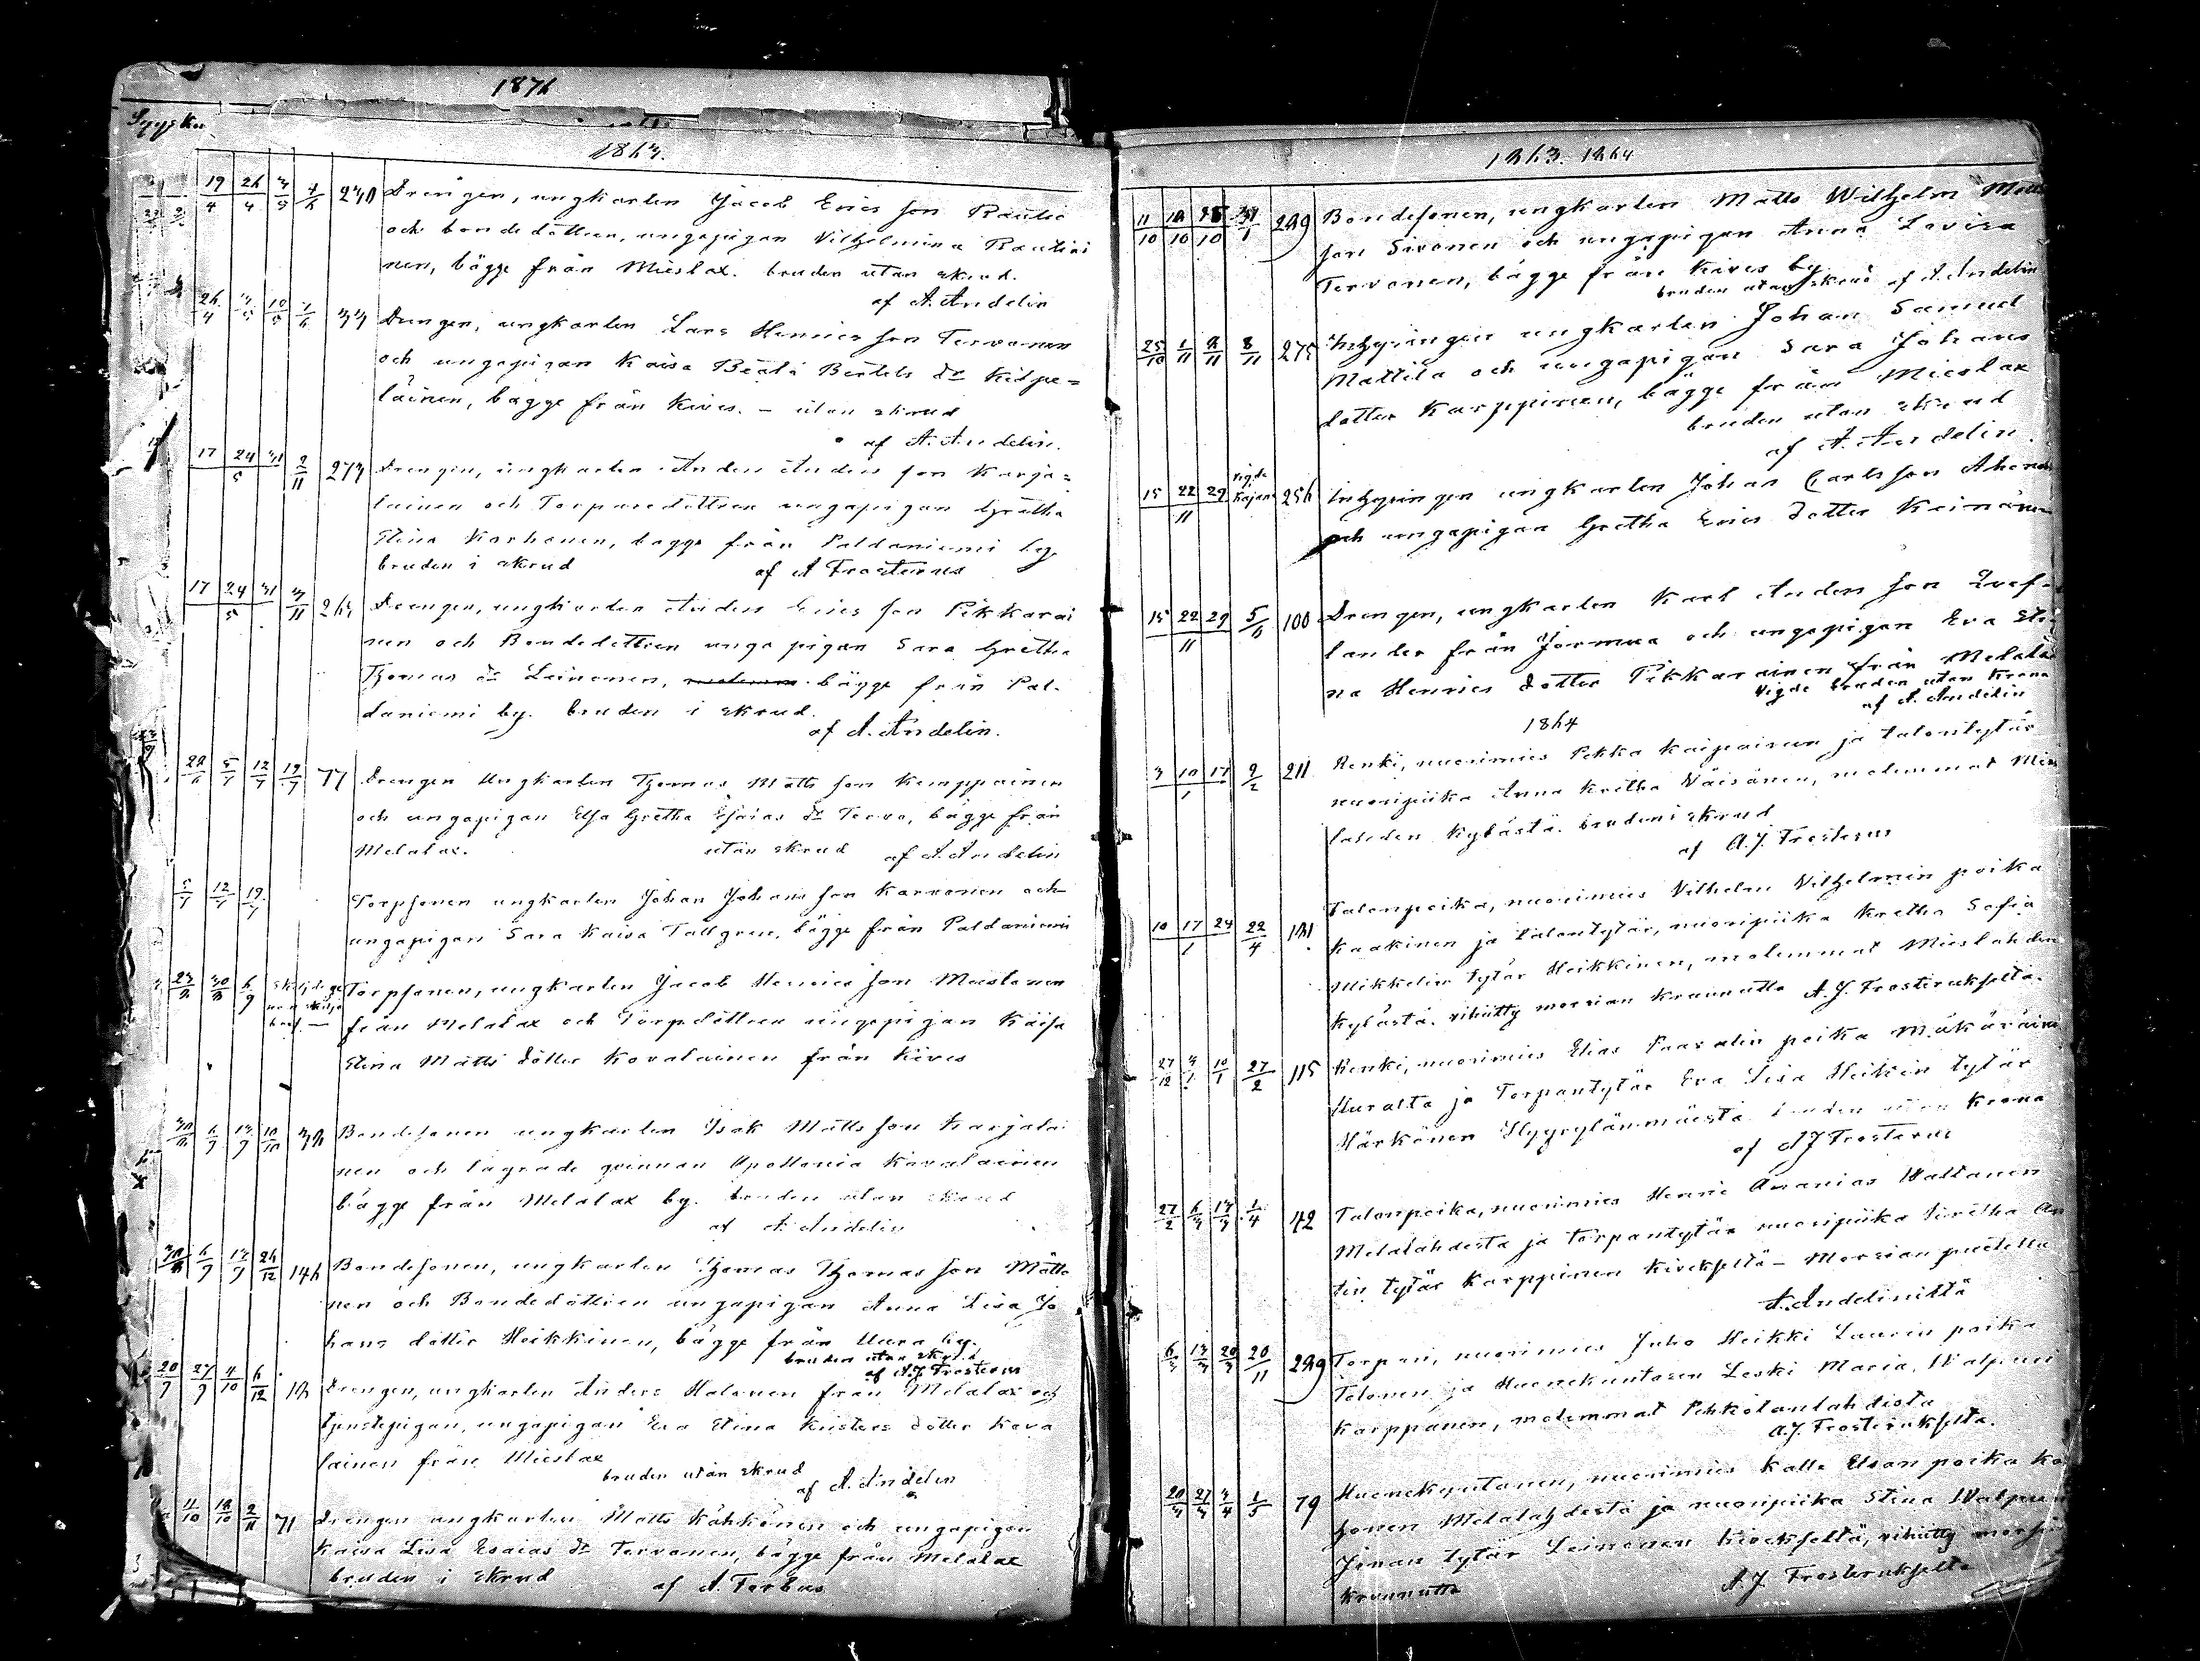 1876
Syysku
1863.
19/4 26/4 3/5 4/6 230 Drengen, ungkarlen Jacob Erics son Rautio
och bondedottren, ungapigan Vilhelmina Rautiai
nen, bägge från Mieslax. bruden utan skrud.
af A. Andelin
26/4 3/5 10/5 1/6 33 Drengen, ungkarlen Lars Henrics son Tervonen
och ungapigan Kaisa Beata Bertels dr Kilpe=
läinen, bägge från Kives. – utan skrud
af A. Andelin.
17 24 31/5 2/11 273 Drengen, ungkarlen Anders Anders son Karja=
lainen och Torparedottren ungapigan Gretha
Stina Karhonen, bägge från Paldaniemi by
bruden i skrud af A Frosterus
17 24 31/5 3/11 263 Drengen, ungkarlen Anders Erics son Pikkarai
nen och Bondedottren unga pigan Sara Gretha
Thomas dr Leinonen, bägge från Pal-
daniemi by. bruden i skrud.
af A. Andelin.
28/6 5/7 12/7 19/7 77 Drengen Ungkarlen Thomas Matts son Kemppainen
och ungapigan Elsa Gretha Esaias dr Tervo, bägge från
Melalax. utan skrud af A. Andelin
5/7 12/7 19/7 Torpsonen ungkarlen Johan Johans son Karvonen och
ungapigan Sara Kaisa Tallgren, bägge från Paldaniemi
23/8 30/8 6/9 Torpsonen, ungkarlen Jacob Henrics son Mustonen
från Melalax och Torpdottren ungapigan Kaisa
Stina Matts dotter Kovalainen från Kives
30/8 6/9 13/9 10/10 38 Bondesonen ungkarlen Isak Matts son Karjalai
nen och lägrade qvinnan Apollonia Kovalainen
bägge från Melalax by. bruden utan skrud
af A. Andelin
30/8 6/9 13/9 26/12 146 Bondesonen, ungkarlen Thomas Thomas son Määttä
nen och Bondedottren ungapigan Anna Lisa Jo
hans dotter Heikkinen, bägge från Uura by.
bruden utan skrud
af A.J Frosterus
20/9 27/9 4/10 6/12 18 Drengen, ungkarlen Anders Halonen från Melalax och
tjenstepigan, ungapigan Eva Stina Kristers dotter Kova
lainen från Mieslax
bruden utan skrud
af A. Andelin
11/10 18/10 2/11 71 Drengen ungkarlen Matts Kähkönen och ungapigan
Kaisa Lisa Esaias dr Tervonen, bägge från Melalax
bruden i skrud af A. Forbus
1863. 1864
11/10 18/10 25/10 289 Bondesonen, ungkarlen Matts Wilhelm Matts
son Sivonen och ungapigan Anna Lovisa
Tervonen, bägge från Kives by
bruden utan skrud af A. Andelin
25/10 1/11 8/11 8/11 275 Inhysingen ungkarlen Johan Samuel
Mattila och ungapigan Sara Johans
dotter Karppinen, bägge från Mieslax
bruden utan skrud
af A. Andelin.
15 22 29/11 vigde Kajana 256 Inhysingen ungkarlen Johan Carlsson Ahonen
och ungapigan Gretha Erics dotter Keinänen
15 22 29/11 5/6 100 Drengen, ungkarlen Karl Anders son
lander från Jormua och ungapigan Eva Sti
na Henrics dotter Pikkarainen från Melalax
vigde bruden utan Krona
af A. Andelin
1864
3 10 17/1 9/2 211 Renki, nuorimies Pekka Kaipainen ja talontytär
nuoripiika Anna Kretha Väisänen, molemmat Mies
lahden Kylästä. bruden i skrud
af A.J. Frosterus
10 17 24/1 22/4 181 Talonpoika, nuorimies Vilhelm Vilhelmin poika
Kaakinen ja talontytär, nuoripiika Kretha Sofia
Mikkelin tytär Heikkinen, molemmat Mieslahden
Kylästä. vihitty morsian kruunutta A.J. Frosterukselta.
27/12 3/1 10/1 27/2 115 Renki, nuorimies Elias Paavalin poika Mäkäräinen
Uuralta ja Torpantytär Eva Lisa Heikin tytär
Härkönen Hyyrylänmäestä bruden utan Krona
af A J Frosterus
27/2 6/3 13/3 1/4 42 Talonpoika, nuorimies Henric Ananias Waltanen
Melalahdesta ja torpantytär nuoripiika Gretha An
tin tytär Karppinen Kiveksestä – Morsian puetettu
A. Andeliniltä
6/3 13/3 20/3 20/11 289 Torpari, nuorimies Juho Heikki Laurin poika
Tolonen ja Huonekuntasen Leski Maria Walpuri
Karppanen, molemmat Pehkolanlahdista
A.J. Frosterukselta.
20/3 27/3 3/4 1/5 79 Huonekuntanen, nuorimies Kalle Elsan poika Ko
honen Melalahdesta ja nuoripiika Stina Walpuri
Juhan tytär Leinonen Kiveksestä, vihitty morsian
kruunutta A.J Frosterukselta